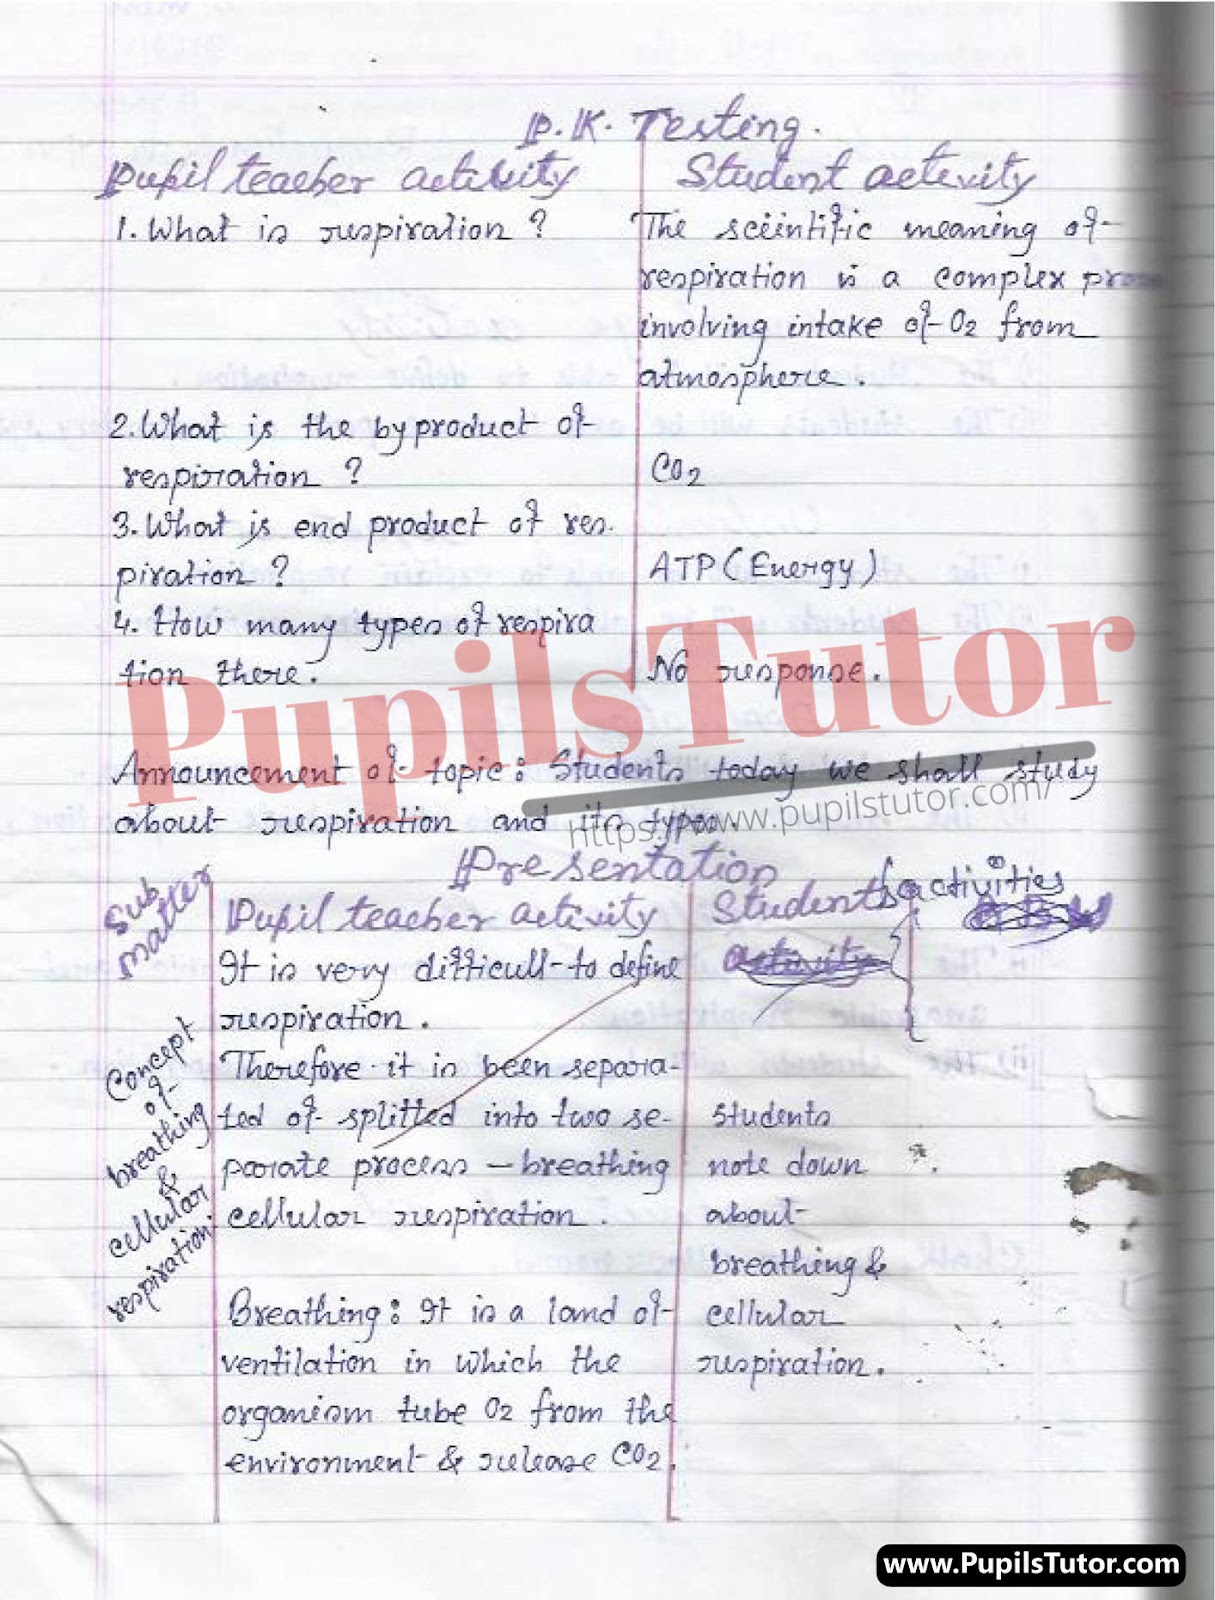 P.K. Testing.
Pupil teacher activity
Student activity
1. What is respiration ?
The scientific meaning of
respiration is a complex
involving intake of O2 from
atmosphere.
2. What is the byproduct of
respiration ?
CO2
3. What is end product of res.
piration ?
ATP (Energy)
4. How many types of respira
tion there.
No response.
PupilsTutor
https://www.pupilstutor.com/
Announcement of topic: Students today we shall study
about respiration and its types.
Presentation
Sub
matter
Pupil teacher activity
Students activities
Concept
of
breathing
&
cellular
respiration.
It is very difficult to define
respiration.
Therefore it is been separa-
ted of splitted into two se-
parate process – breathing
cellular respiration.
Breathing: It is a land of
ventilation in which the
organism tube O2 from the
environment & release CO2.
Students
note down
about
breathing &
cellular
respiration.
www.PupilsTutor.com